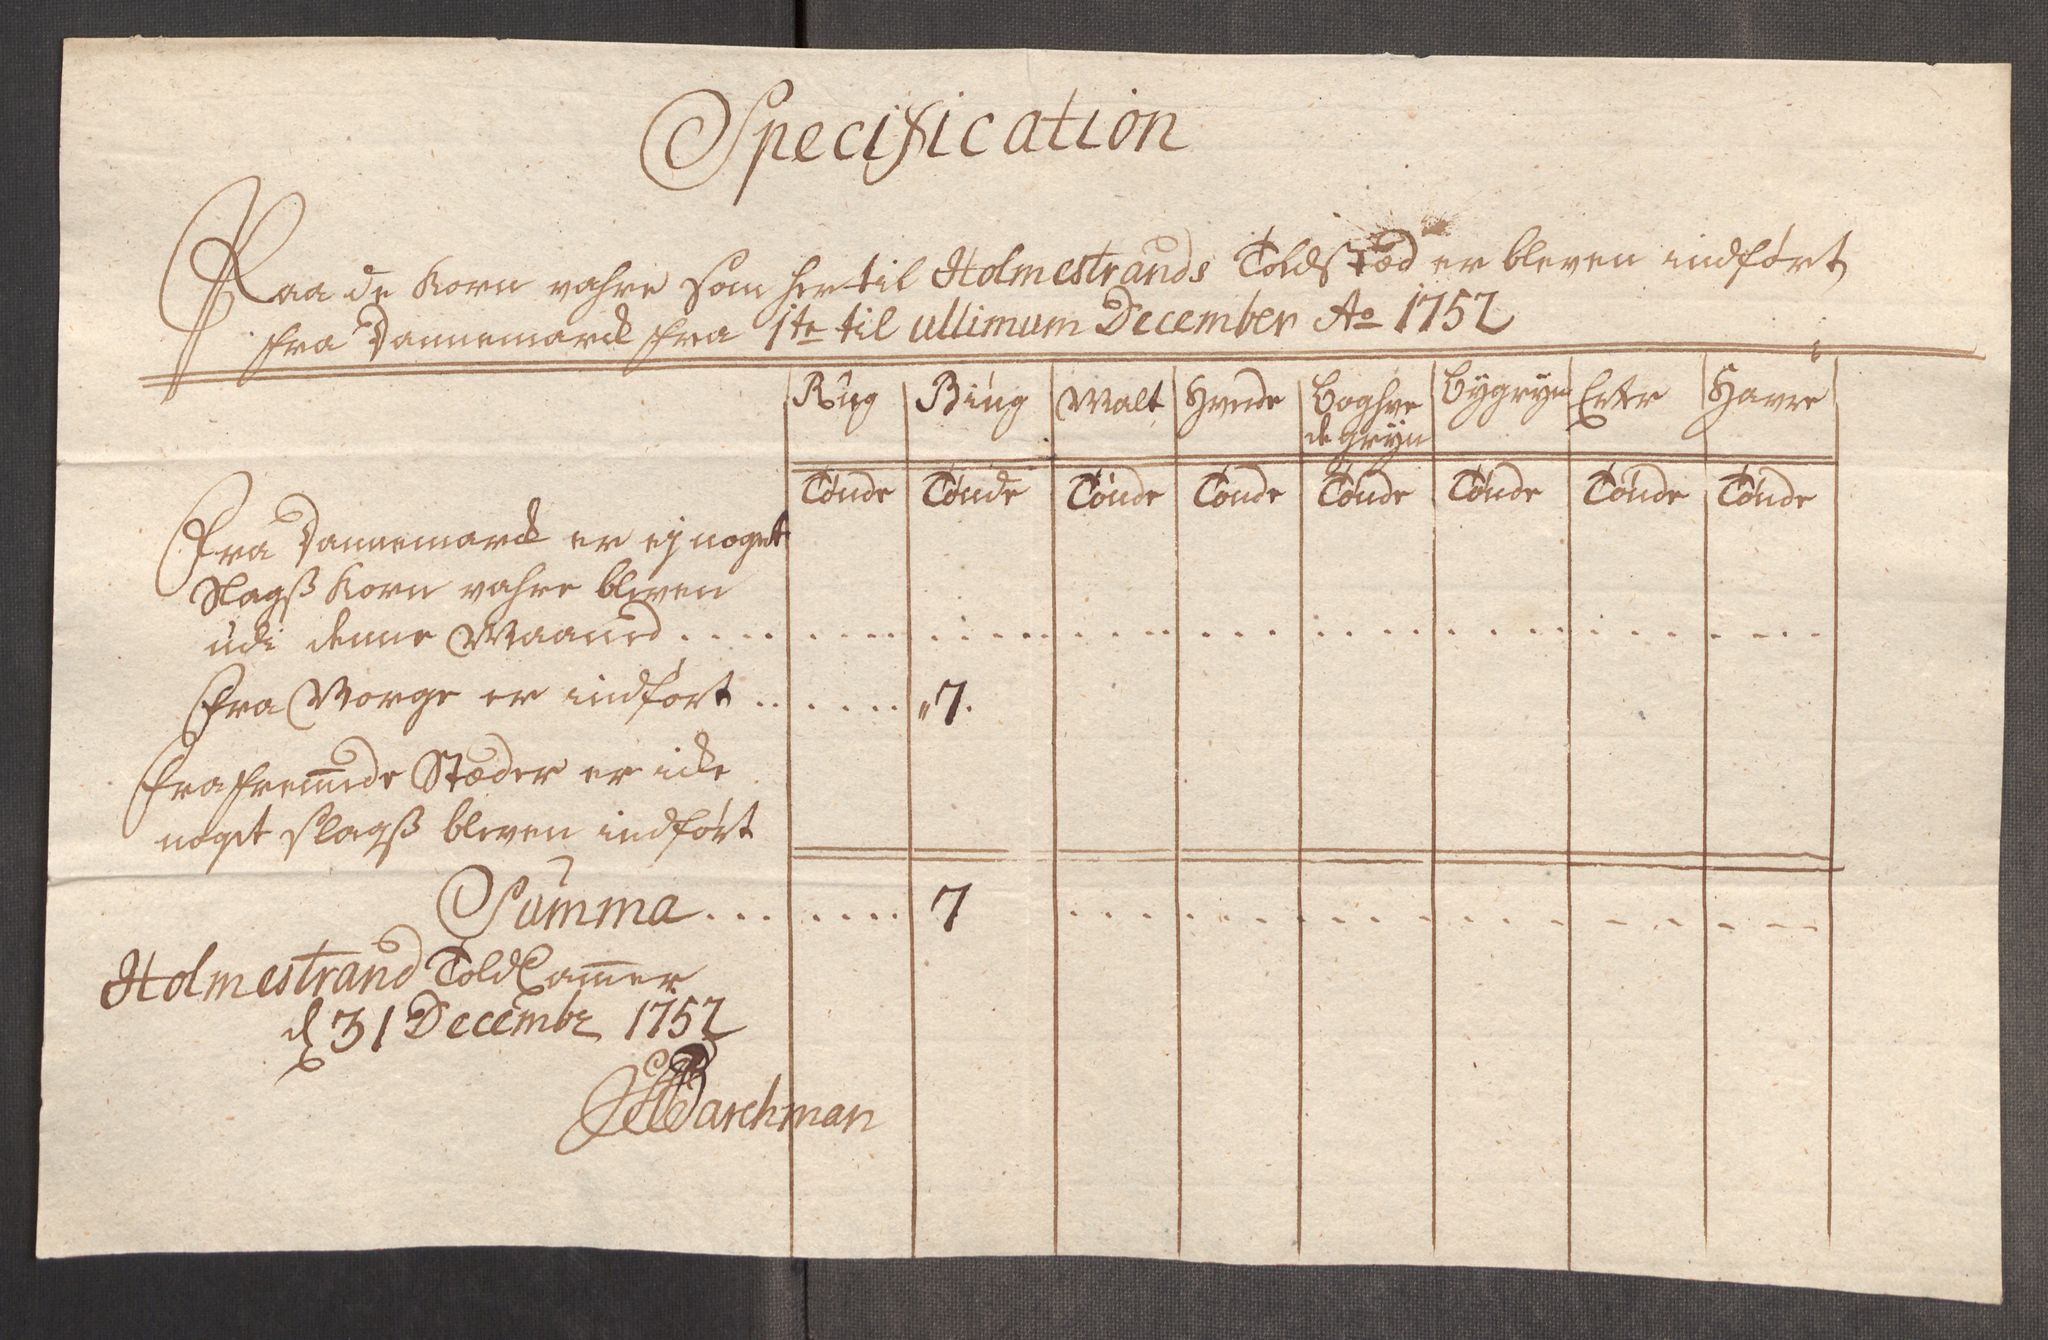 Specification
Paa de Korn vahre som her til Holmestrands Toldstæd er bleven indført
fra Dannemarck fra 1te til ultimum December Ao 1752
Rug Biug Malt Hvede Boghve Bÿgrÿn Erter Havre
de grÿn
Tønde Tønde Tønde Tønde Tønde Tønde Tønde Tønde
Fra Dannemarck er ej noget
Slagß Korn vahre bleven
udi denne Maaned . . . .
Fra Norge er indført . . . . . . „ 7.
Fra fremmede Stæder er icke
noget slagß bleven indført
Summa . . . . . . . 7
Holmestrand Told Cam̅er
d 31 Decembr 1752
Barchman